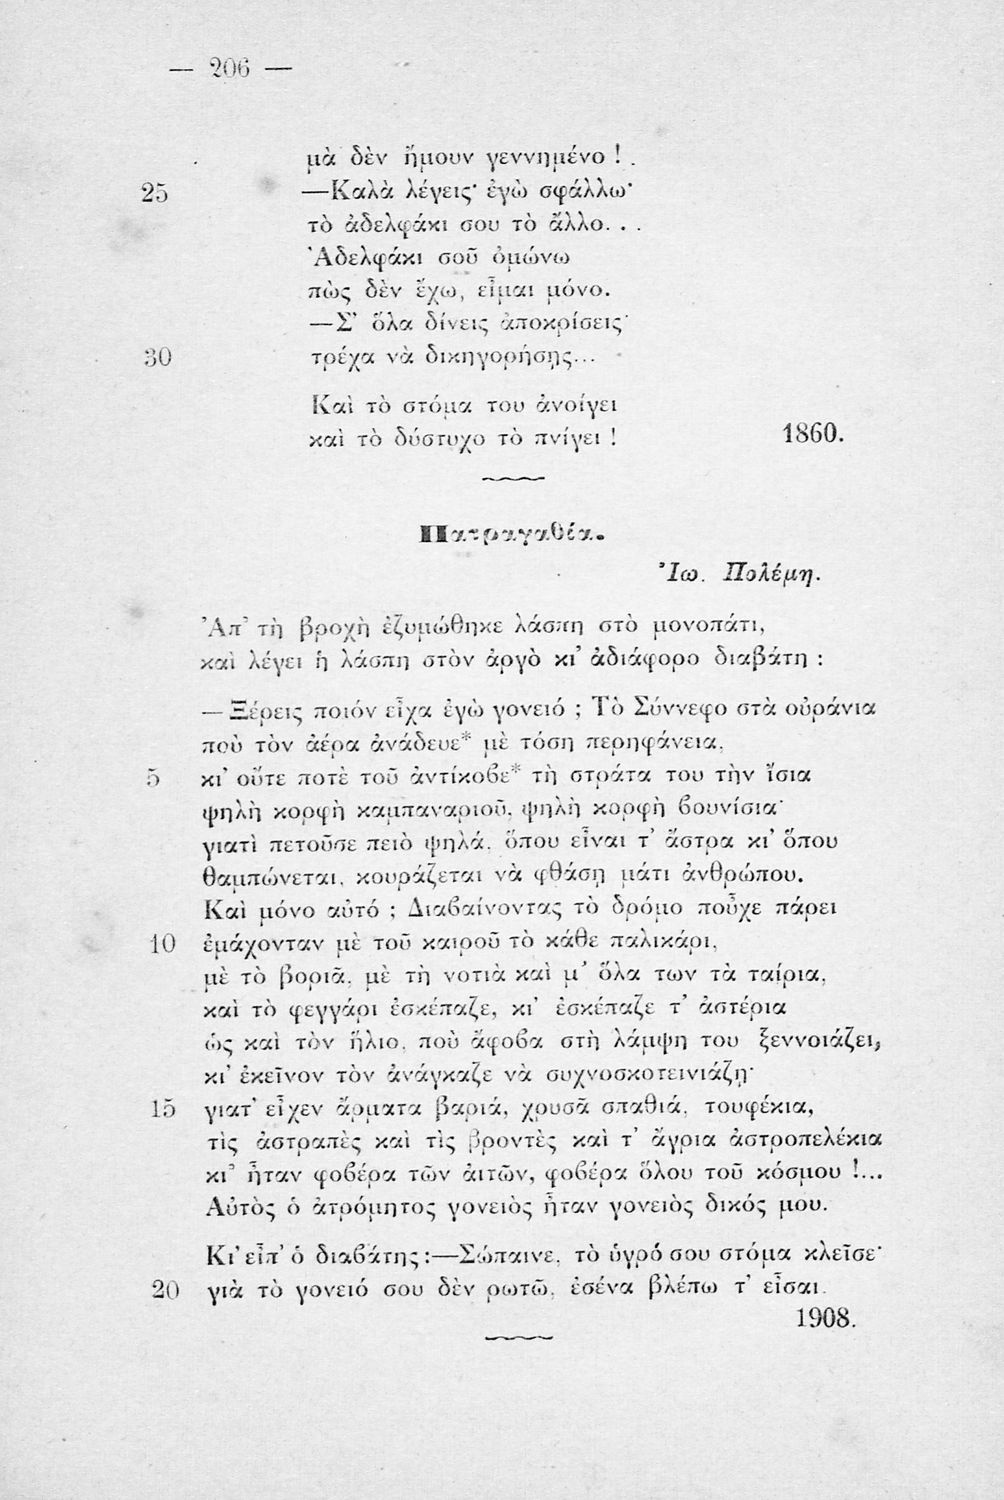 — 206 —
μὰ δὲν ἤμουν γεννημένο !
25 —Καλὰ λέγεις· ἐγὼ σφάλλω·
τὸ ἀδελφάκι σου τὸ ἄλλο. . .
Ἀδελφάκι σοῦ ὀμώνω
πὼς δὲν ἔχω, εἶμαι μόνο.
—Σ’ ὅλα δίνεις ἀποκρίσεις·
30 τρέχα νὰ δικηγορήσῃς...
Καὶ τὸ στόμα του ἀνοίγει
καὶ τὸ δύστυχο τὸ πνίγει ! 1860.
Πατραγαθέα.
Ἰω. Πολέμη.
Ἀπ’ τὴ βροχὴ ἐζυμώθηκε λάσπη στὸ μονοπάτι,
καὶ λέγει ἡ λάσπη στὸν ἀργὸ κι’ ἀδιάφορο διαβάτη :
—Ξέρεις ποιόν εἶχα ἐγὼ γονειό ; Τὸ Σύννεφο στὰ οὐράνια
ποὺ τὸν ἀέρα ἀνάδευε* μὲ τόση περηφάνεια,
5 κι’ οὔτε ποτὲ τοῦ ἀντίκοβε* τὴ στράτα του τὴν ἴσια
ψηλὴ κορφὴ καμπαναριοῦ, ψηλὴ κορφὴ βουνίσια·
γιατὶ πετοῦσε πειὸ ψηλά, ὅπου εἶναι τ’ ἄστρα κι’ ὅπου
θαμπώνεται, κουράζεται νὰ φθάσῃ μάτι ἀνθρώπου.
Καὶ μόνο αὐτό ; Διαβαίνοντας τὸ δρόμο ποὖχε πάρει
10 ἐμάχονταν μὲ τοῦ καιροῦ τὸ κάθε παλικάρι,
μὲ τὸ βοριᾶ, μὲ τὴ νοτιὰ καὶ μ’ ὅλα των τὰ ταίρια,
καὶ τὸ φεγγάρι ἐσκέπαζε, κι’ ἐσκέπαζε τ’ ἀστέρια
ὡς καὶ τὸν ἥλιο, ποὺ ἄφοβα στὴ λάμψη του ξεννοιάζει,
κι’ ἐκεῖνον τὸν ἀνάγκαζε νὰ συχνοσκοτεινιάζῃ·
15 γιατ’ εἶχεν ἄρματα βαριά, χρυσᾶ σπαθιά, τουφέκια,
τὶς ἀστραπὲς καὶ τὶς βροντὲς καὶ τ’ ἄγρια ἀστροπελέκια
κι’ ἦταν φοβέρα τῶν ἀιτῶν, φοβέρα ὅλου τοῦ κόσμου !...
Αὐτὸς ὁ ἀτρόμητος γονειὸς ἦταν γονειὸς δικός μου.
Κι’ εἶπ’ ὁ διαβάτης :—Σώπαινε, τὸ ὑγρό σου στόμα κλεῖσε·
20 γιὰ τὸ γονειό σου δὲν ρωτῶ, ἐσένα βλέπω τ’ εἶσαι.
1908.